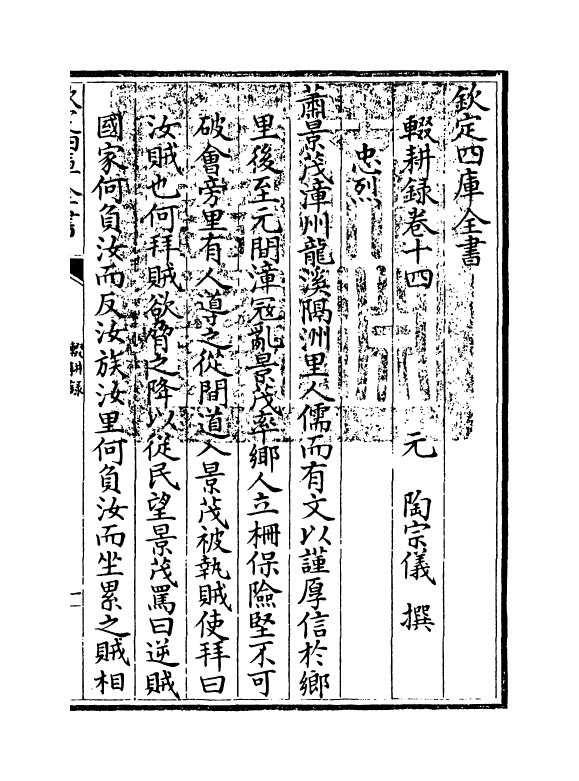 欽定四庫全書
輟耕録卷十四
元 陶宗儀 撰
忠烈
蕭景茂漳州龍溪隔洲里人儒而有文以謹厚信於鄉
里後至元間漳寇亂景茂率鄉人立柵保險堅不可
破會旁里有人導之從間道入景茂被執賊使拜曰
汝賊也何拜賊欲脅之降以從民望景茂罵曰逆賊
國家何負汝而反汝族汝里何負汝而坐累之賊相
欽定四庫全書
輟耕録